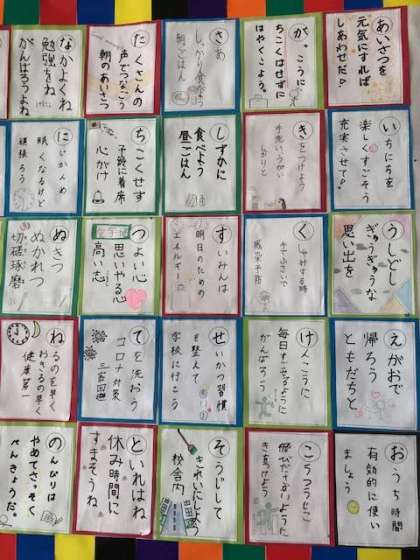 あいさつを
元気にすれば
しあわせだ!
いちにちを
楽しくすごそう
充実させて!
うしどし
ぎゅうぎゅうな
思い出を
えがおで
帰ろう
ともだちと
おうち時間
有効的に使い
ましょう
がっこうに
ちこくはせずに
はやくこよう。
きをつけよう
手洗いうがい
しっかりと
くしゃみする時
感染予防
けんこうに
毎日すごせるように
がんばろう
こうつうじこ
飛びださないように
きをつけよう
さあ
しっかり食べよう
朝ごはん
しずかに
食べよう
昼ごはん
すいみんは
明日のための
エネルギー
せいかつ習慣
を整えて
学校に行こう
そうじして
きれいにしよう
校舎内
たくさんの
声でつなごう
朝のあいさつ
ちこくせず
予鈴に着席
心がけ
つよい心
思いやる心
高い志
てを洗おう
コロナ対策
三密回避
といれはね
休み時間に
すませようね
なかよくね
勉強もね
がんばろうよね
にじかんめ
眠くなるけど
頑張ろう
ぬきつ
ぬかれつ
切磋琢磨
ねるのを早く
おきるの早く
健康第一
のんびりは
やめてさっそく
べんきょうだ。